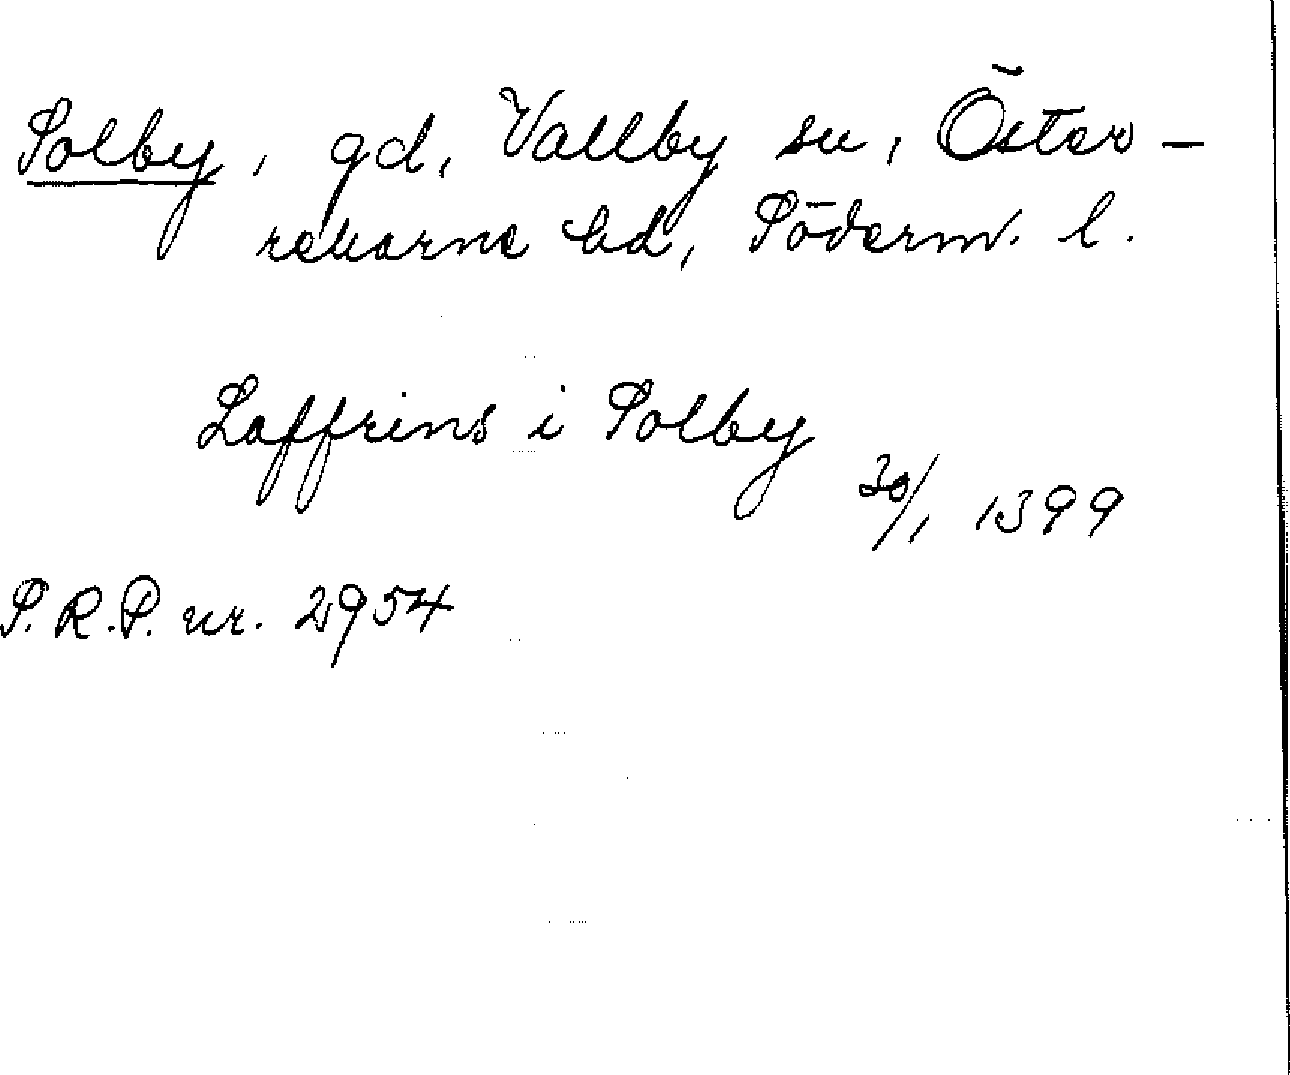 Solby, gd, Vallby sn, Öster-
rekarne hd, Söderm. l.
Laffrins i Solby
30/1 1399
S.R.P. nr. 2954